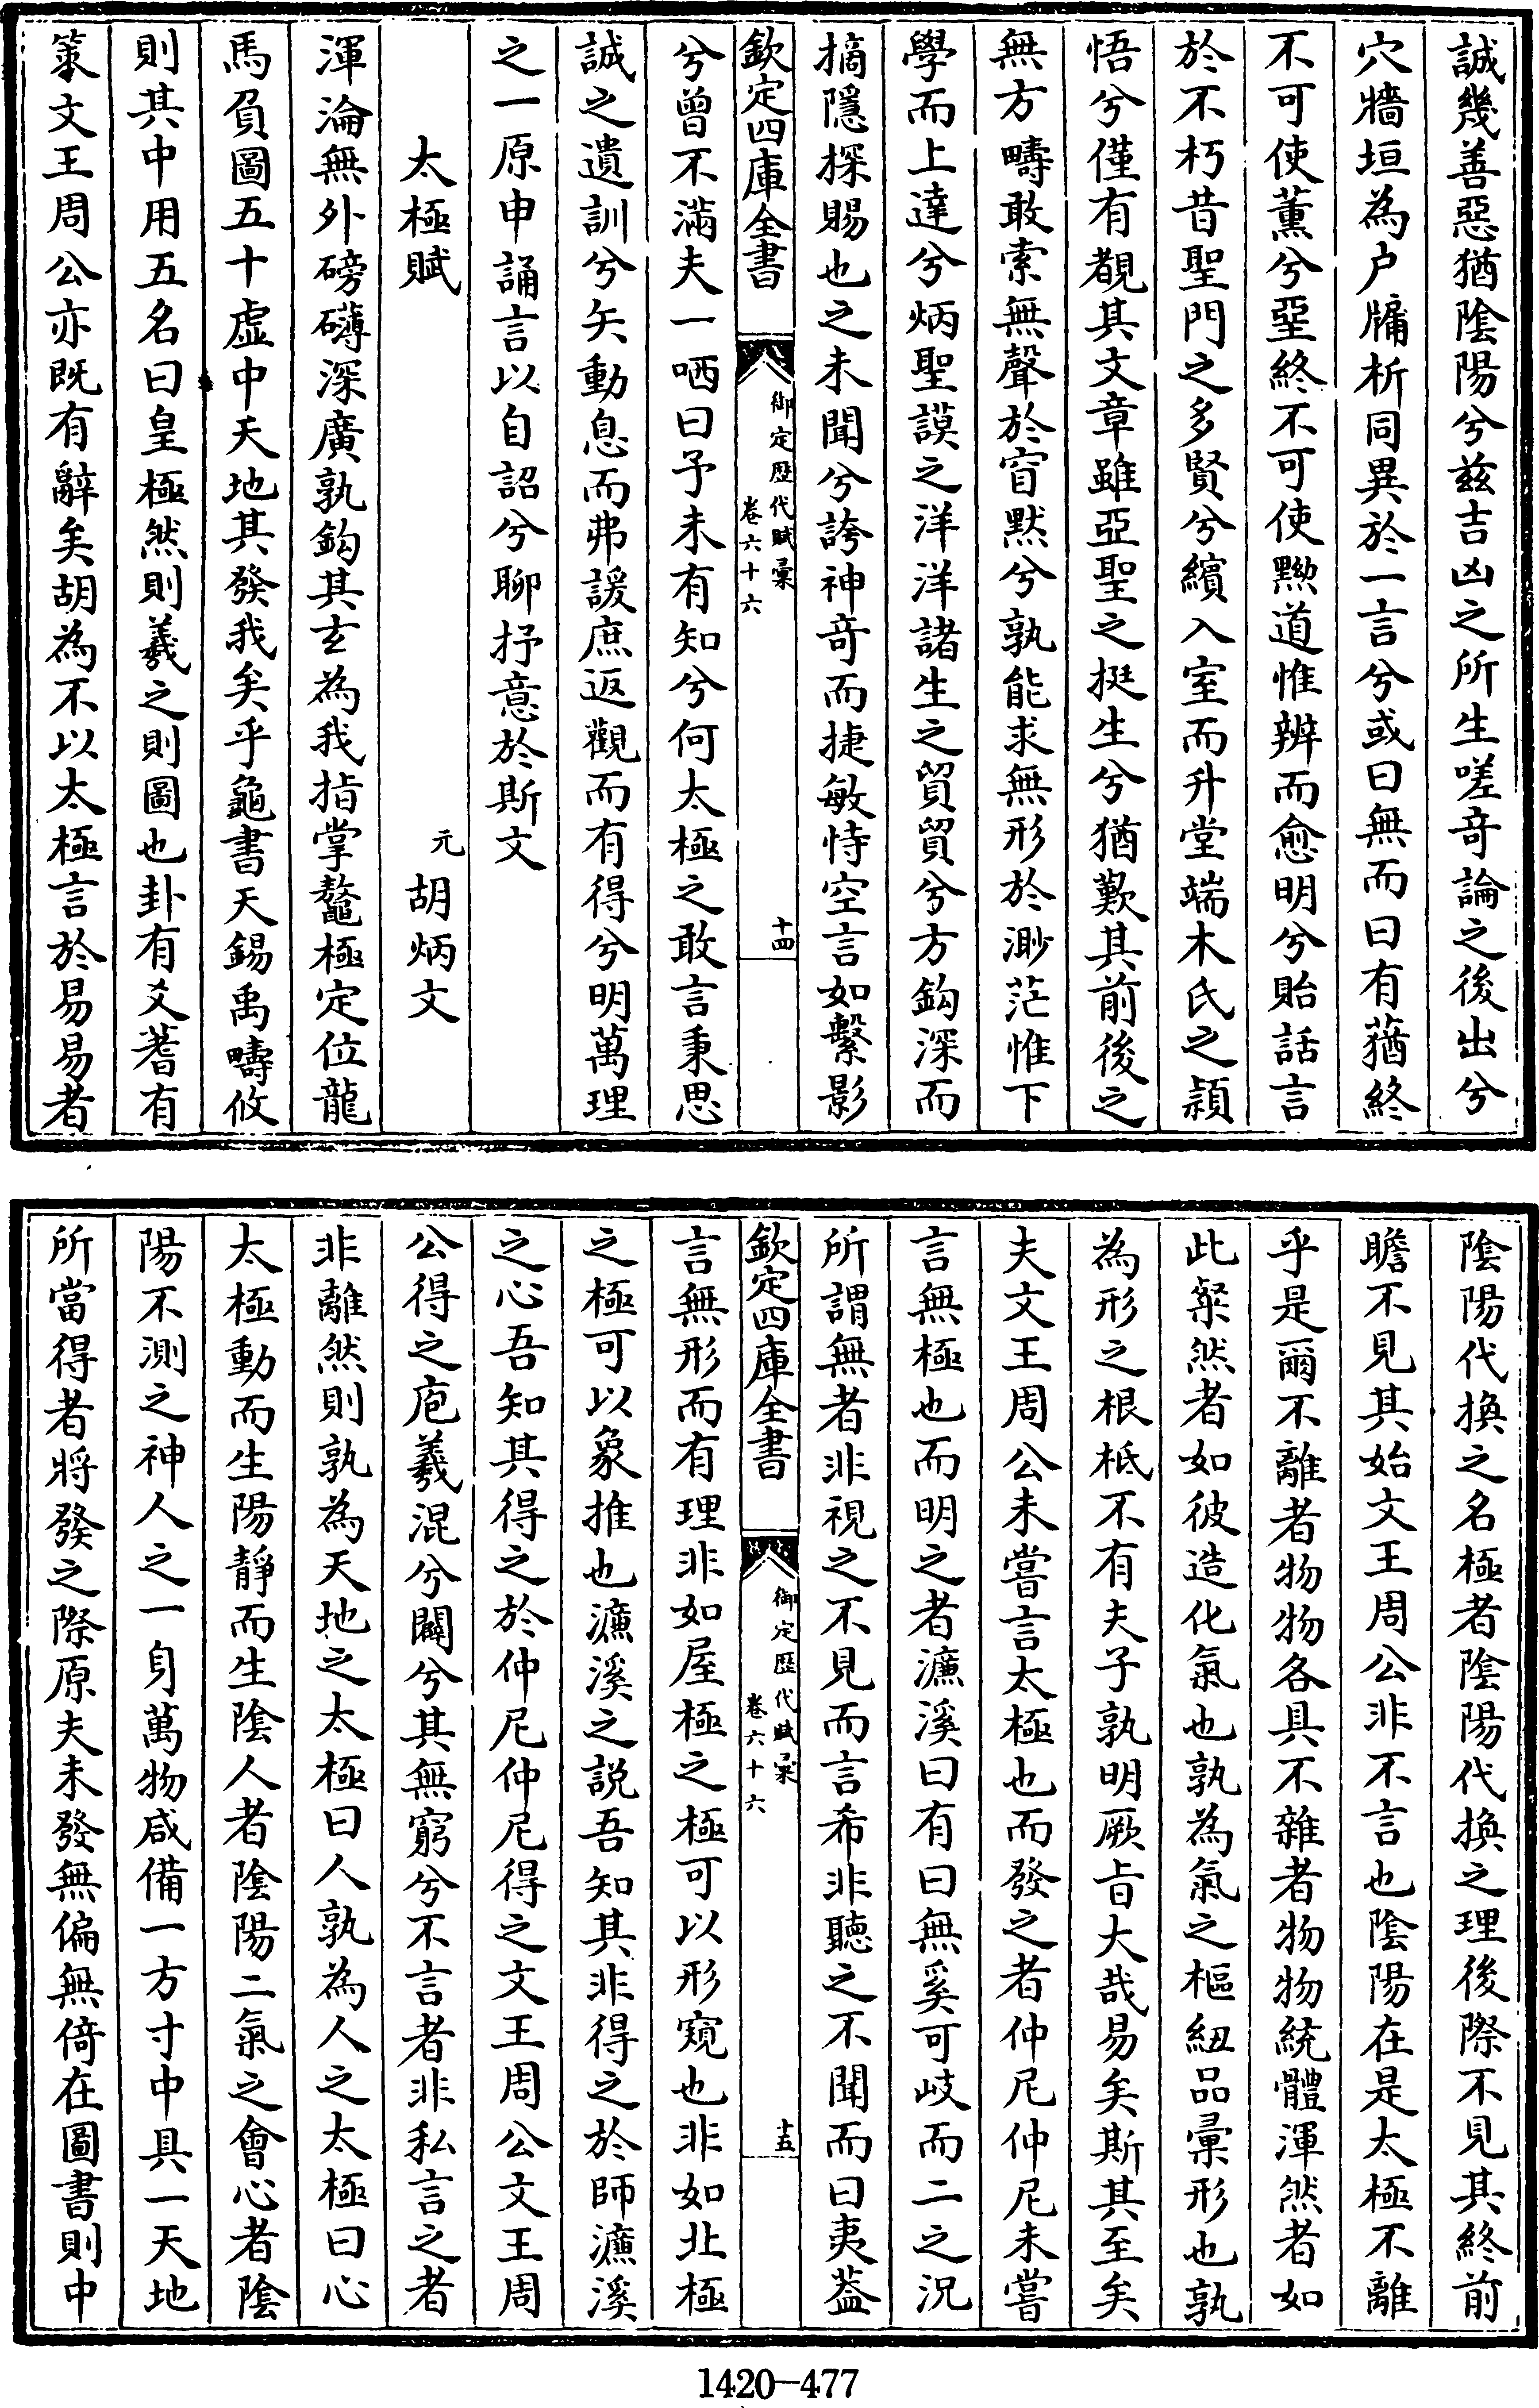 誠幾善惡猶隂陽兮兹吉凶之所生嗟竒論之後出兮
穴牆垣為户牖析同異於一言兮或曰無而曰有蕕終
不可使薰兮堊終不可使黝道惟辨而愈明兮貽話言
於不朽昔聖門之多賢兮繽入室而升堂端木氏之頴
悟兮僅有覩其文章雖亞聖之挺生兮猶歎其前後之
無方疇敢索無聲於窅默兮孰能求無形於渺茫惟下
學而上達兮炳聖謨之洋洋諸生之貿貿兮方鈎深而
摘隱探賜也之未聞兮誇神竒而捷敏恃空言如繫影
欽定四庫全書
御定歴代賦彙
卷六十六
十四
兮曾不滿夫一哂曰予未有知兮何太極之敢言秉思
誠之遺訓兮矢動息而弗諼庶返觀而有得兮明萬理
之一原申誦言以自詔兮聊抒意於斯文
太極賦
元 胡炳文
渾淪無外磅礴深廣孰鈎其玄為我指掌鼇極定位龍
馬負圖五十虚中天地其發我矣乎龜書天錫禹疇攸
則其中用五名曰皇極然則羲之則圖也卦有爻蓍有
䇿文王周公亦既有辭矣胡為不以太極言於易易者
隂陽代換之名極者隂陽代換之理後際不見其終前
瞻不見其始文王周公非不言也隂陽在是太極不離
乎是爾不離者物物各具不雜者物物統體渾然者如
此粲然者如彼造化氣也孰為氣之樞紐品彙形也孰
為形之根柢不有夫子孰明厥旨大哉易矣斯其至矣
夫文王周公未嘗言太極也而發之者仲尼仲尼未嘗
言無極也而明之者濂溪曰有曰無奚可岐而二之況
所謂無者非視之不見而言希非聽之不聞而曰夷葢
欽定四庫全書
御定歴代賦彙
卷六十六
十五
言無形而有理非如屋極之極可以形窺也非如北極
之極可以象推也濂溪之説吾知其非得之於師濂溪
之心吾知其得之於仲尼仲尼得之文王周公文王周
公得之庖羲混兮闢兮其無窮兮不言者非私言之者
非離然則孰為天地之太極曰人孰為人之太極曰心
太極動而生陽靜而生隂人者隂陽二氣之會心者隂
陽不測之神人之一身萬物咸備一方寸中具一天地
所當得者將發之際原夫未發無偏無倚在圖書則中
1420—477